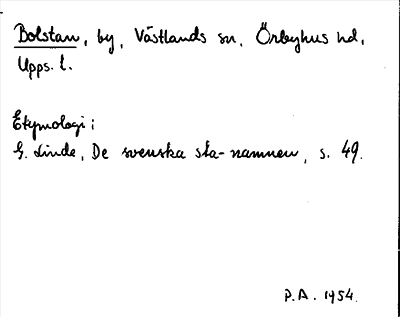 Bolstan, by, Västlands sn, Örbyhus hd,
Upps. l.
Etymologi:
G. Linde, De svenska sta-namnen, s. 49.
P.A. 1954.